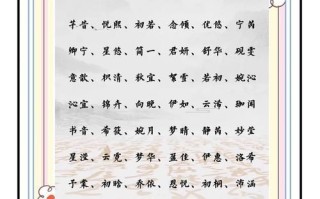 芊昔、恍熙、初若、念颜、优悠、宁芮
卿宁、星悠、简一、君妍、舒华、砚雯
意歆、枳清、秋宜、鸳雪、若初、婉沁
沁宜、锦卉、向晚、伊如、云涔、珈闻
书音、希筱、婉月、梦晴、静芮、妙莹
星滢、云宽、梦华、蓝佳、伊惠、洛希
予霏、初晗、乔依、恩悦、初桐、沛涵